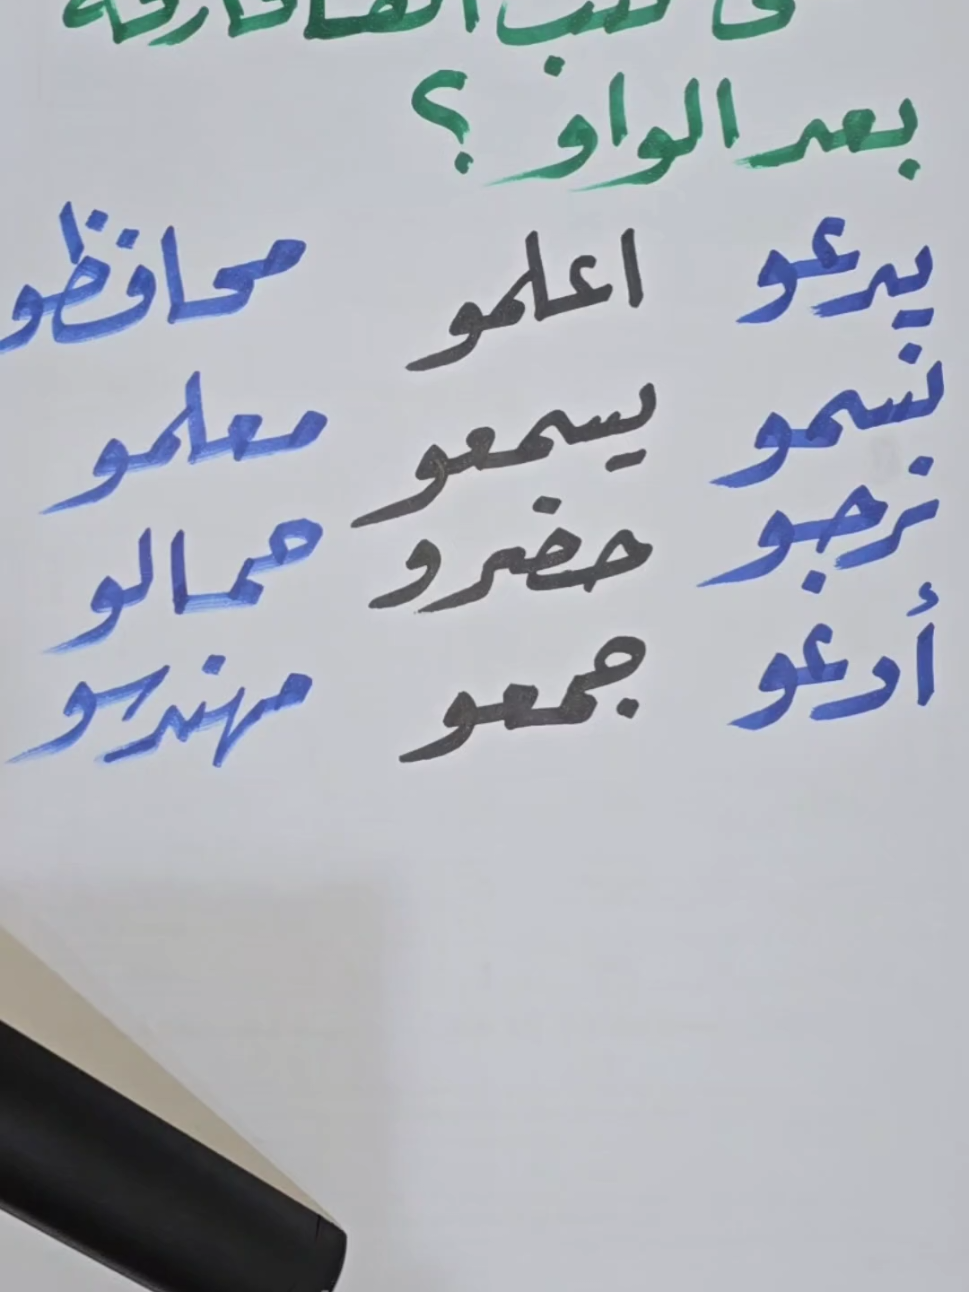 متى نكتب ألفا فارقة
بعد الواو ؟
يدعو اعلمو محافظو
نسمو يسمعو معلمو
نرجو حضرو حمالو
أدعو جمعو مهندسو